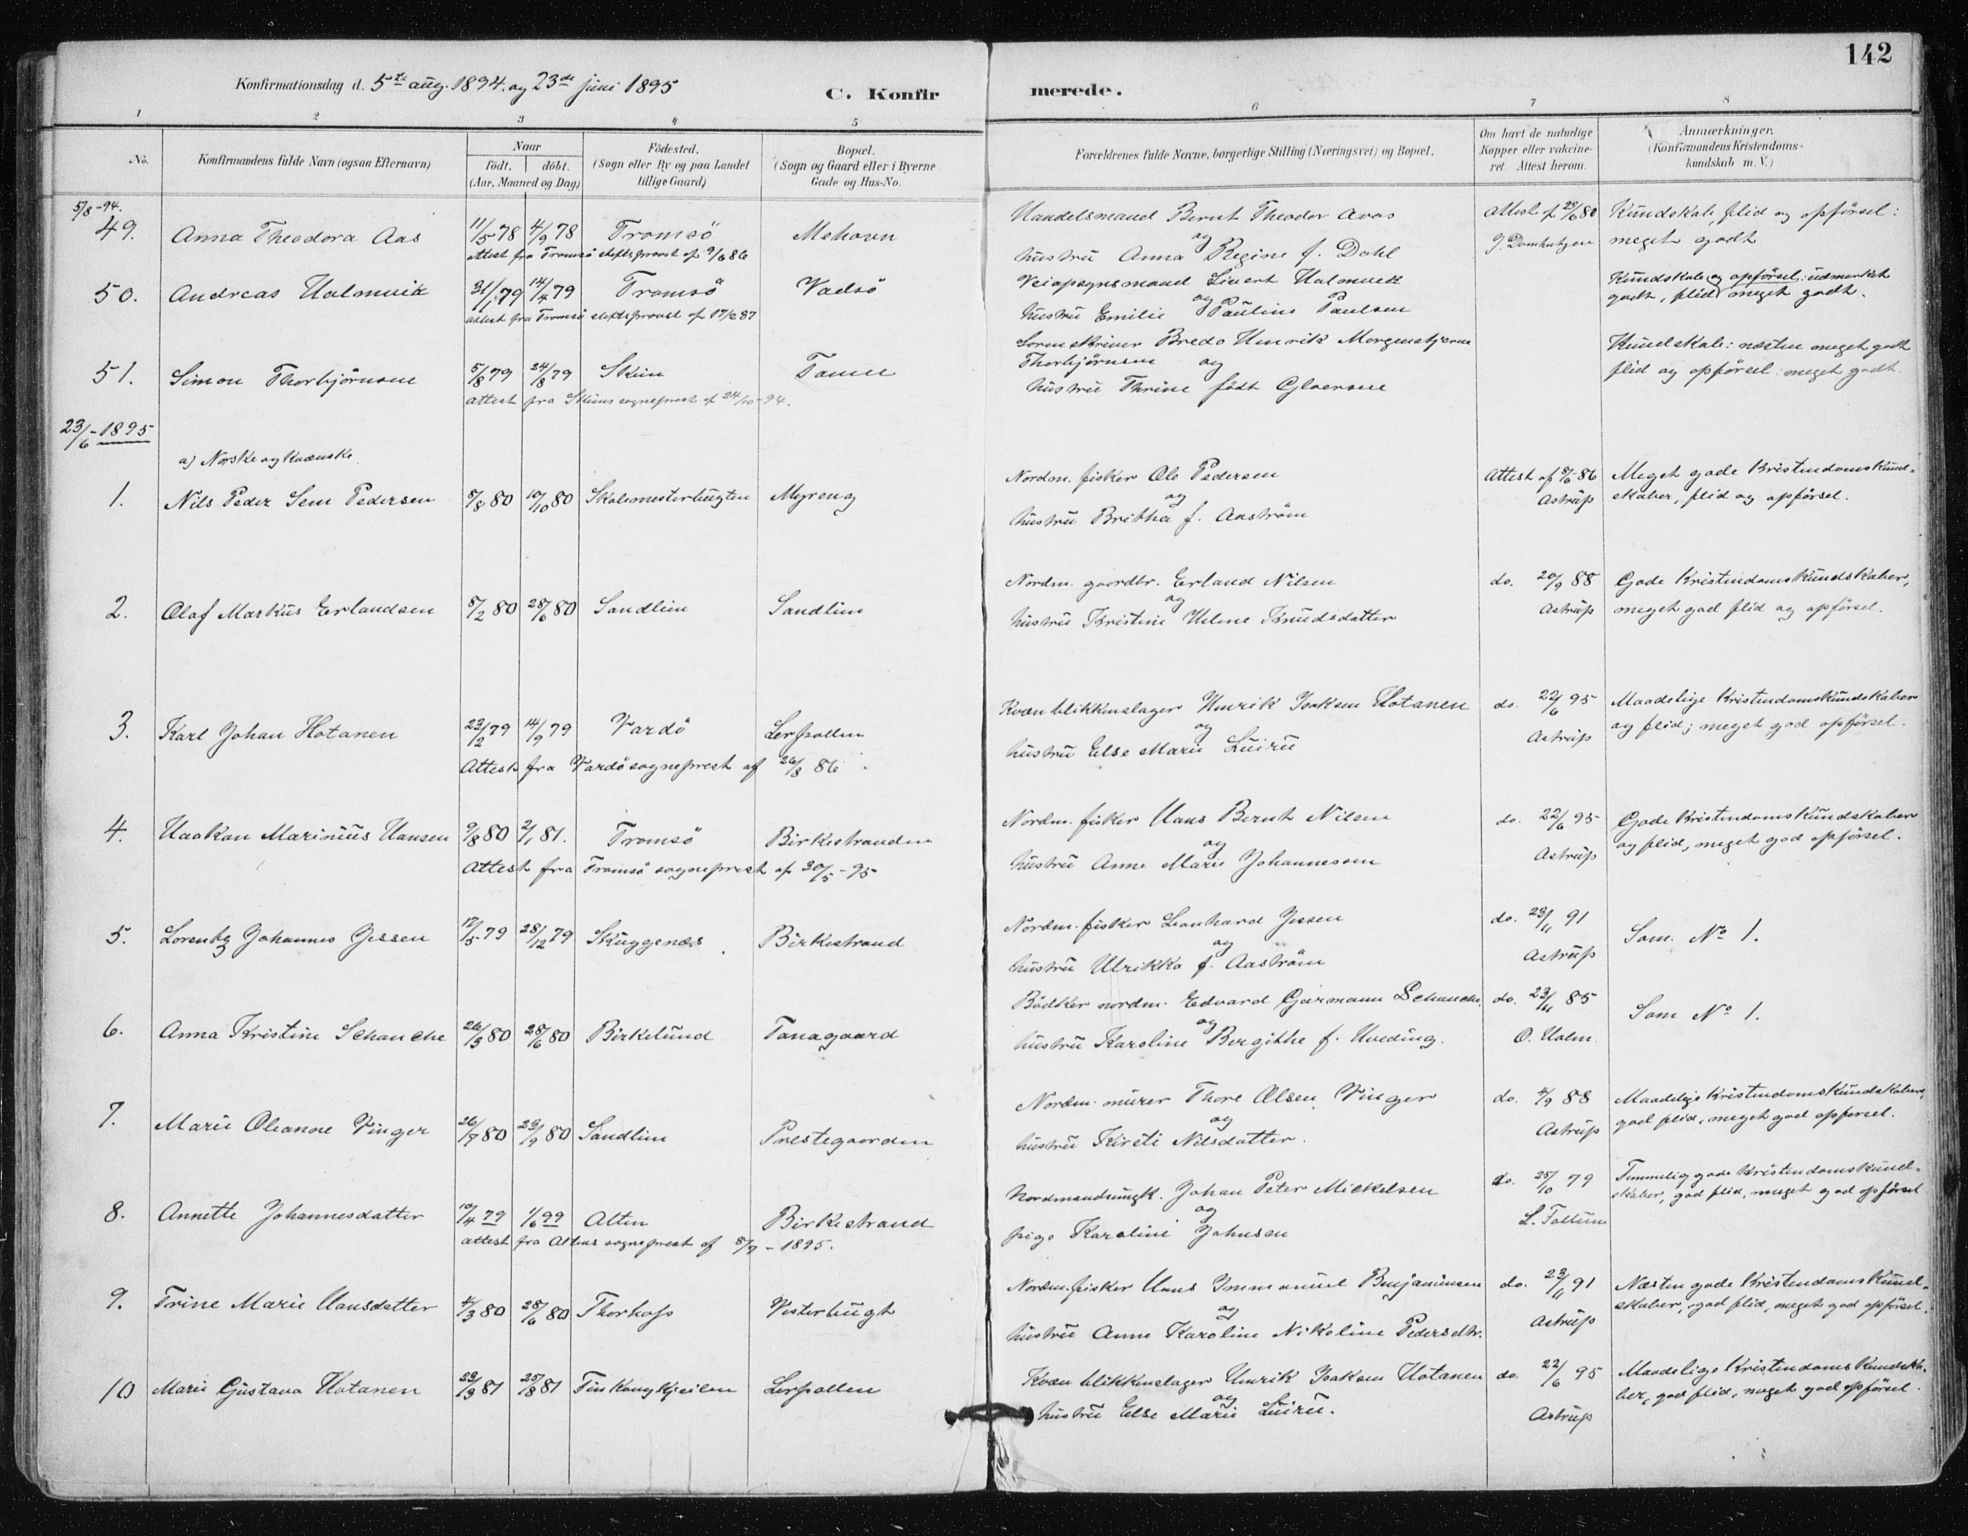 142
Konfirmationsdag d. 5te aug. 1894 og 23de juni 1895
C. Konfirmerede.
1 2 3 4 5 6 7 8
No. Konfirmandens fulde Navn (ogsaa Efternavn) Naar født. døbt. (Aar, Maaned og Dag) Fødested. (Sogn eller By og paa Landet tillige Gaard) Bopæl. (Sogn og Gaard eller i Byerne Gade og Hus-No. Forældrenes fulde Navne, borgerlige Stilling (Næringsvei) og Bopæl. Om havt de naturlige Kopper eller vakcineret. Attest herom. Anmærkninger. (Konfirmandens Kristendomskundskab m. V.)
5/8-94.
49. Anna Theodora Aas 11/5 78 4/9 78 Tromsö Mehavn Handelsmand Bernt Theodor Avas attest af 29/6 80 Kundskab, flid og opförsel:
og hustru Anna Regine f. Dahl meget godt
attest fra Tromsö stiftsprovst af 9/6 86
50. Andreas Holmvik 31/1 79 14/4 79 Tromsö Vadsö Veiopsynsmand Sivert Holmvik Kundskab og opförsel: udmerket
og hustru Emilie Pauline Paulsen godt, flid meget godt.
attest fra Tromsö stiftsprovst af 17/6 87
51. Simon Thorbjörnsen 5/8 79 24/8 79 Skien Tanen Sorenskriver Bredo Henrik Morgenstjerne Kundskab: næsten meget godt
Thorbjörnsen og flid og opförsel: meget godt.
hustru Thrine födt Cloersen
attest fra Skiens sogneprest af 24/10-94.
23/6-1895
a) Norske og kvænske
1. Nils Peder Sem Pedersen 8/8 80 10/10 80 Skolemesterbugten Myreng Nordm. fisker Ole Pedersen Attest af 8/6-86 Meget gode Kristendomskund-
og hustru Britha f. Aaström Astrup skaber, flid og opförsel.
2. Olaf Markus Erlandsen 8/2 80 28/6 80 Sandlien Sandlien Nordm. gaardbr. Erland Nilsen do. 20/9 88 Gode Kristendomskundskaber,
og hustru Kristine Helene Knudsdatter Astrup meget god flid og opförsel.
3. Karl Johan Hotanen 23/2 79 14/9 79 Vardö Lerpollen Kvæn blikkenslager Henrik Isaksen Hotanen do. 22/6 95 Maadelige Kristendomskundskaber
og hustru Else Marie Luiru Astrup og flid; meget god opförsel.
Attest fra Vardö sogneprest af 26/8 86
4. Haakon Marinius Hansen 9/8 80 2/1 81. Tromsö Birkestranden Nordm. fisker Hans Bernt Nilsen do. 22/6 95 Gode Kristendomskundskaber
og hustru Anne Marie Johannesen Astrup og flid, meget god opförsel.
Attest fra Tromsö sogneprest af 20/5-95
5. Lorentz Johannes Jessen 17/5 79 28/12 79 Skuggenæs Birkestrand Nordm. fisker Leonhard Jessen do. 23/11 91 Som No 1.
og hustru Ulrikka f. Aaström Astrup
6. Anna Kristine Schanche 26/3 80 28/6 80 Birkelund Tanagaard Bödker nordm. Edvard Garmann Schanche do. 23/11 85 Som No 1.
og hustru Karoline Bergithe f. Hveding. O. Holm.
7. Marie Oleanne Vinger 26/7 80 23/9 80 Sandlien Prestegaarden Nordm. murer Thore Olsen Vinger do. 4/9 88 Maadelige Kristendomskundskaber,
og hustru Kirsti Nilsdatter. Astrup god flid, meget god opförsel.
8. Annette Johannesdatter 10/4 79 1/6 99 Alten Birkestrand Nordmandungk. Johan Peter Mickelsen do. 25/10 79 Temmelig gode Kristendomskund-
og pige Karoline Johnsen skaber, god flid, meget god opförsel
attest fra Altens sogneprest af 8/7-1895.
9. Trine Marie Hansdatter 4/3 80 28/6 80 Thorhop Vesterbugt Nordm. fisker Hans Immanuel Benjaminsen do. 23/11 91 Næsten gode Kristendomskund-
og hustru Anne Karoline Nikoline Pedersdtr. Astrup skaber, god flid, meget god opförsel.
10 Marie Gustava Hotanen 23/3 81 25/8 81 Finkongkjeilen Lerpollen Kvæn blikkenslager Henrik Isaksen Hotanen do. 22/6 95 Maadelige Kristendoms kundska-
og hustru Else Marie Luiru. Astrup ber, god flid, meget god opförsel.